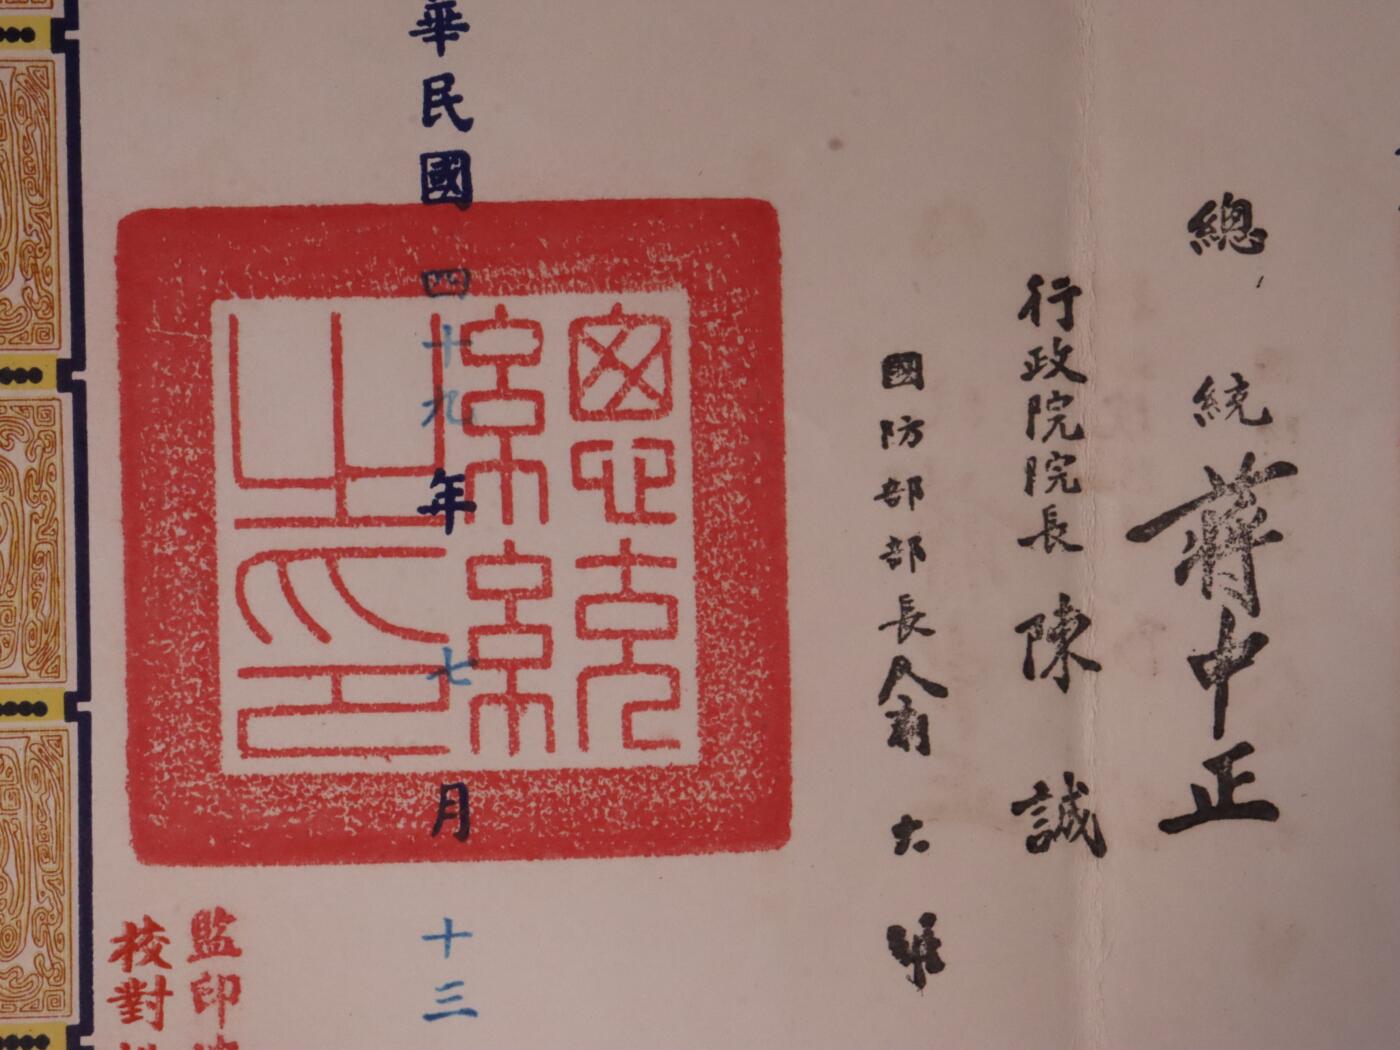 總統 蔣中正
行政院院長 陳誠
國防部部長 俞大維
華民國四十九年七月十三
總統
之印
監印
校對